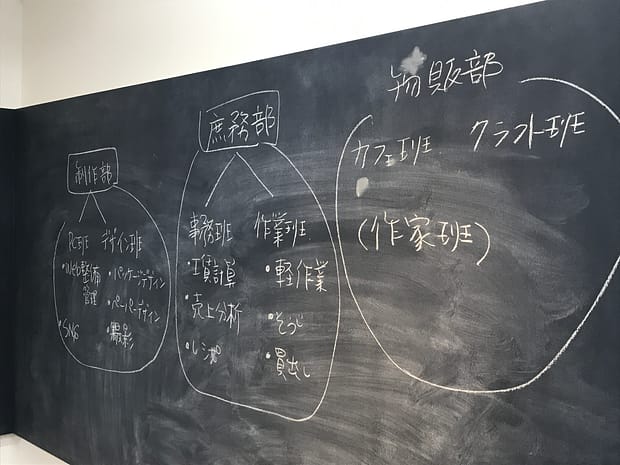 制作部
PC班 デザイン班
・Web整備 ・パッケージデザイン
管理 ・ペーパーデザイン
・SNS ・撮影
庶務部
事務班 作業班
・工賃計算 ・軽作業
・売上分析 ・そうじ
・レシピ ・買出し
物販部
カフェ班 クラフト班
(作家班)